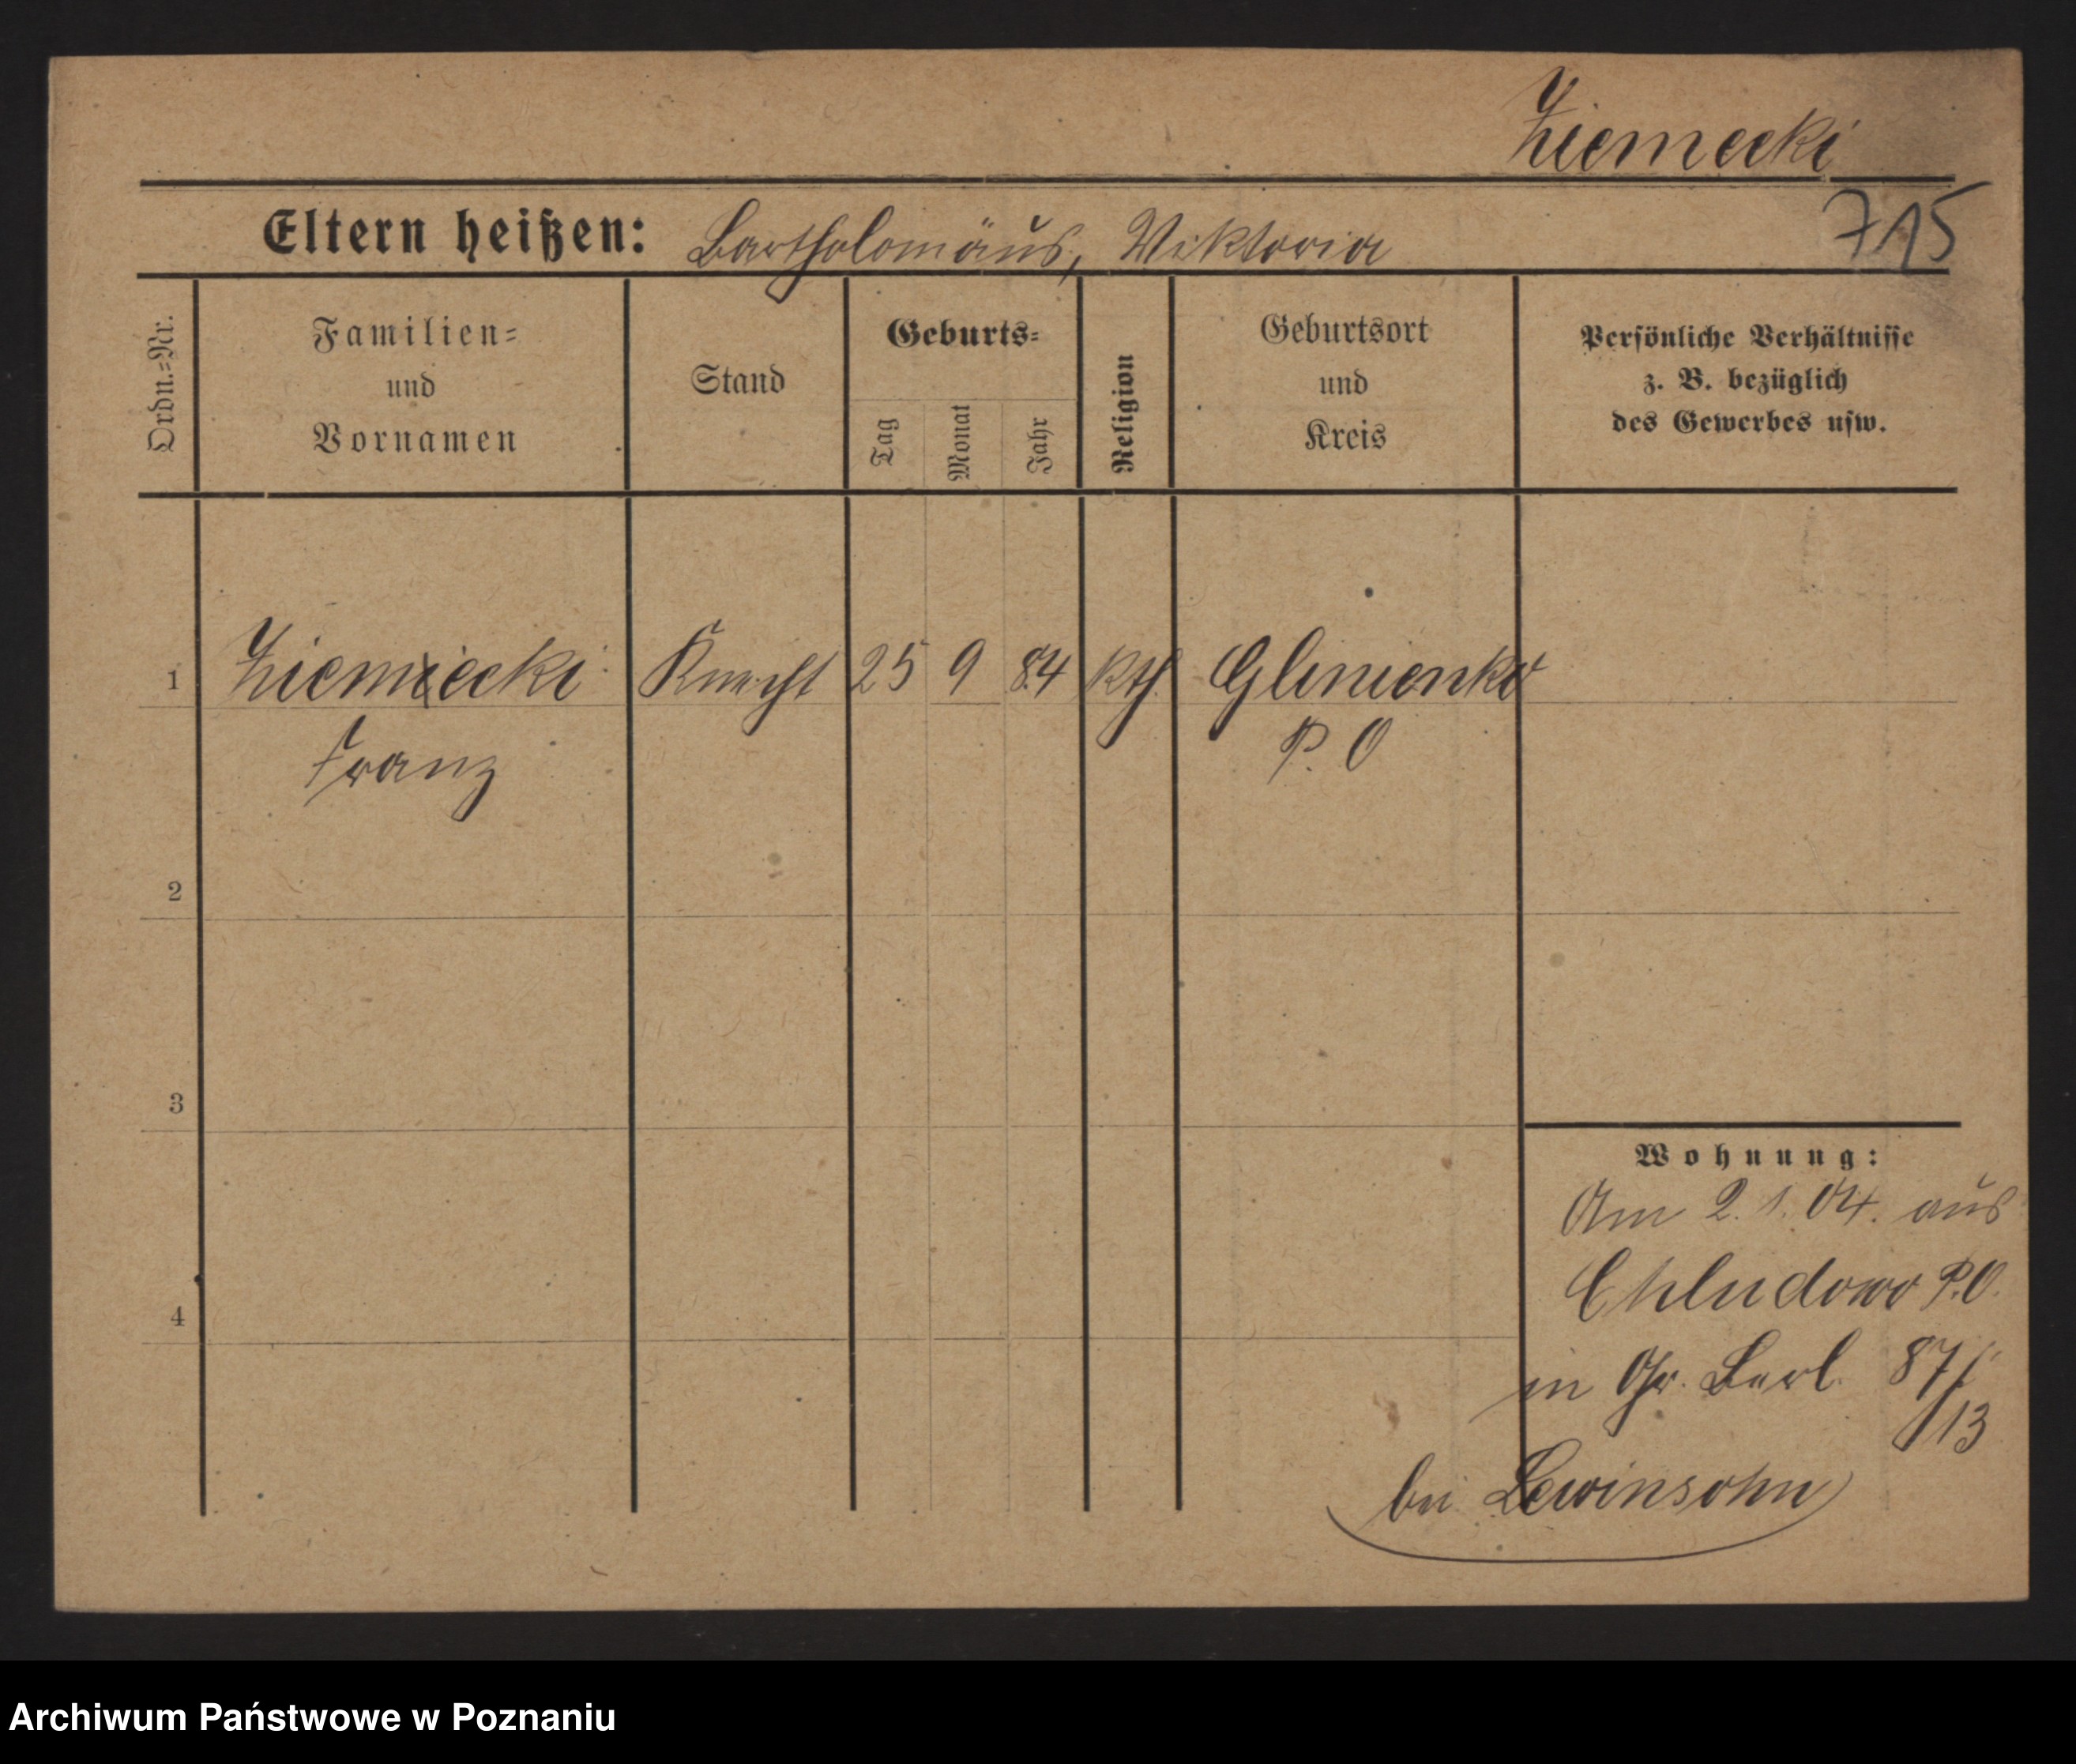 Ziemecki
715
Eltern heißen: Bartholomäus, Viktoria
Ordn.=Nr.
Familien=
und
Vornamen
Stand
Geburts=
Tag
Monat
Jahr
Religion
Geburtsort
und
Kreis
Persönliche Verhältnisse
z. B. bezüglich
des Gewerbes usw.
1 Ziemiecki Knecht 25 9 84 kth. Glinienko
Franz P. O
2
3
4
Wohnung:
Am 2. 1. 04. aus
Chludowo P. O.
in Gr. Berl. 87/
13
bei Lewinsohn
Archiwum Państwowe w Poznaniu